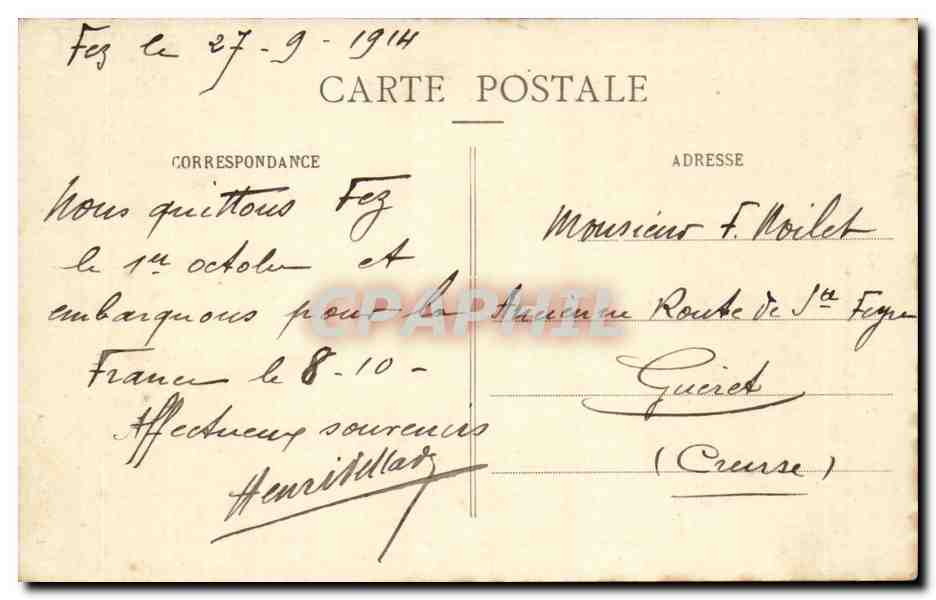 Fez le 27-9-1914
CARTE POSTALE
CORRESPONDANCE
Nous quittons Fez
le 1er octobre et
embarquons pour la
France le 8-10-
Affectueux souvenirs
Henri
ADRESSE
Monsieur F. Noilet
Ancienne Route de Ste Feyre
Guéret
(Creuse)
CPAPHIL